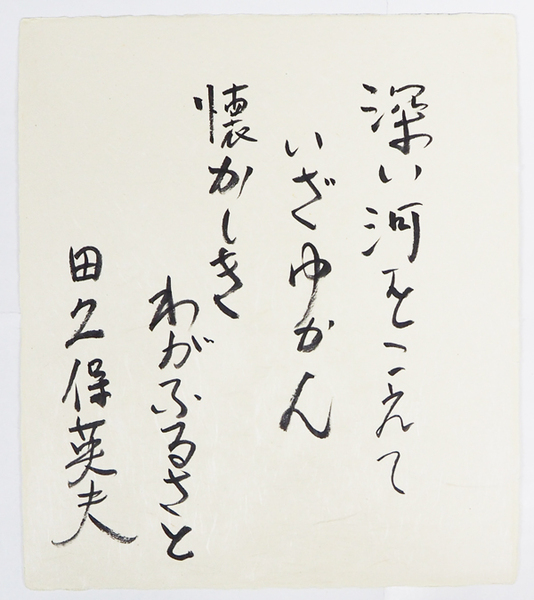 深い河をこえて
いざゆかん
懐かしき
わがふるさと
田久保英夫